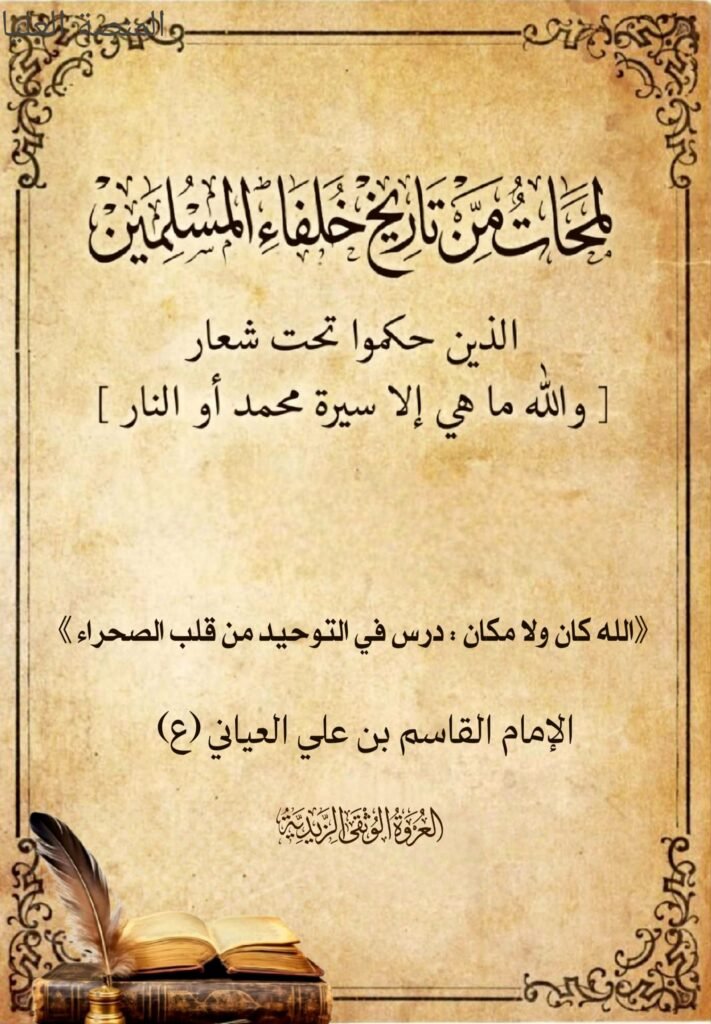 المنصة العليا
لَمَحَاتٌ مِّنْ تَارِيخِ خُلَفَاءِ المُسْلِمِيْنْ
الذين حكموا تحت شعار
[ والله ما هي إلا سيرة محمد أو النار ]
《الله كان ولا مكان : درس في التوحيد من قلب الصحراء》
الإمام القاسم بن علي العياني (ع)
العُرْوَةُ الوُثْقَى الزَّيْدِيَّةُ